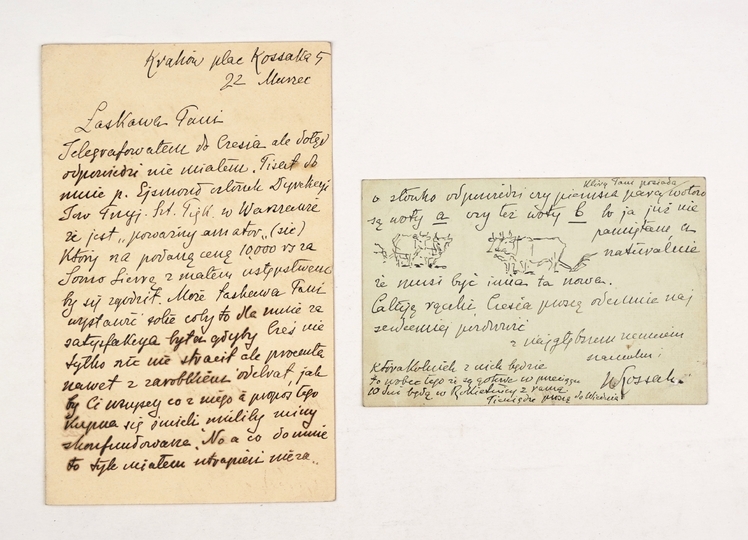 Kraków plac Kossaka 5
22 Marzec
Łaskawa Pani
Telegrafowałem do Czesia ale dotąd
odpowiedzi nie miałem. Pisał do
mnie p. Ejsmond członek Dyrekcyi
Tow Przyj. Szt. Pięk. w Warszawie
że jest „poważny amator„ (sic)
który na podaną cenę 10000 rs za
Somo Sierrę z małem ustępstwem
by się zgodził. Może Łaskawa Pani
wystawić sobie coby to dla mnie za
satysfakcya była gdyby Cześ nie
tylko nic nie stracił ale procenta
nawet z zarobkiem odebrał, jak
by Ci wszyscy co z niego à propos tego
kupna się śmieli mieliby miny
skonfundowane. No a co do mnie
to tyle miałem utrapień nieza..
którą Pani posiada
o słówko odpowiedzi czy pierwsza para wołów
są woły a czy też woły b bo ja już nie
pamiętam a
naturalnie
że musi być inna ta nowa.
Całuję rączki Czesia proszę odemnie naj
serdeczniej pozdrowić
z najgłębszem
Którakolwiek z nich będzie
to wobec tego że są gotowe w przeciągu
10 dni będą w z ramą
Pieniądze proszę do Wiednia
W Kossak.